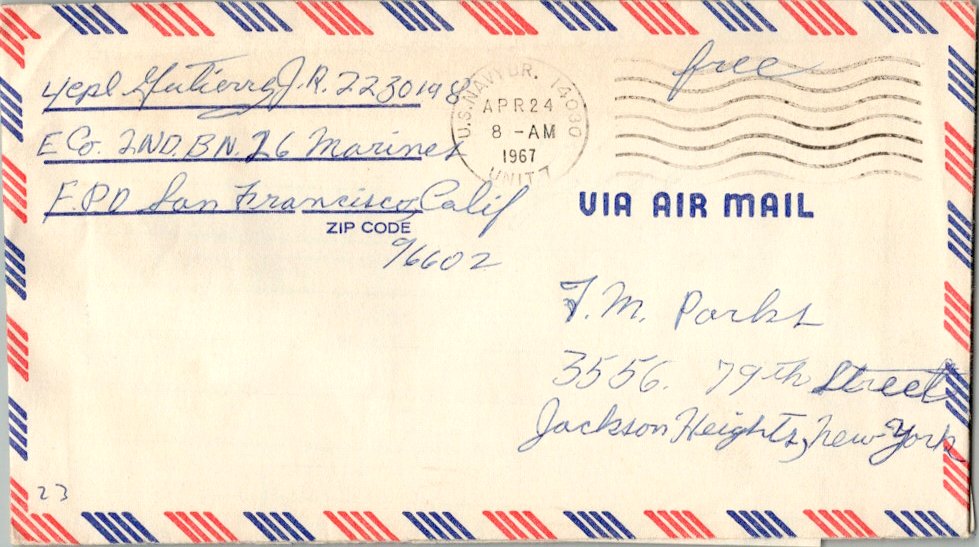 free
L/cpl Gutierrez J.R. 2230198
E Co. 2ND. BN. 26 Marines
F.P.O San Francisco, Calif
ZIP CODE
96602
U.S. NAVY BR. 14030
APR 24
8 -AM
1967
UNIT 7
VIA AIR MAIL
F.M. Parks
3556. 79th Street
Jackson Heights, New York
23